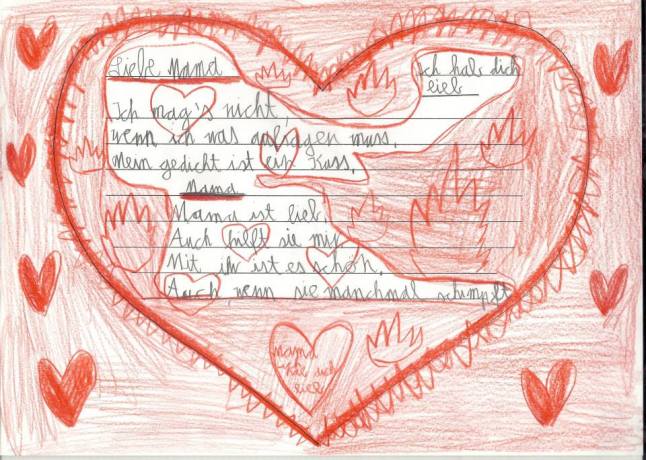 Liebe Mama
Ich hab dich
lieb
Ich mag's nicht,
wenn ich was aufsagen muss.
Mein gedicht ist ein Kuss.
Mama
Mama ist lieb.
Auch hilft sie mir
Mit ihr ist es schön.
Auch wenn sie manchmal schimpft
Mama
hab dich
lieb